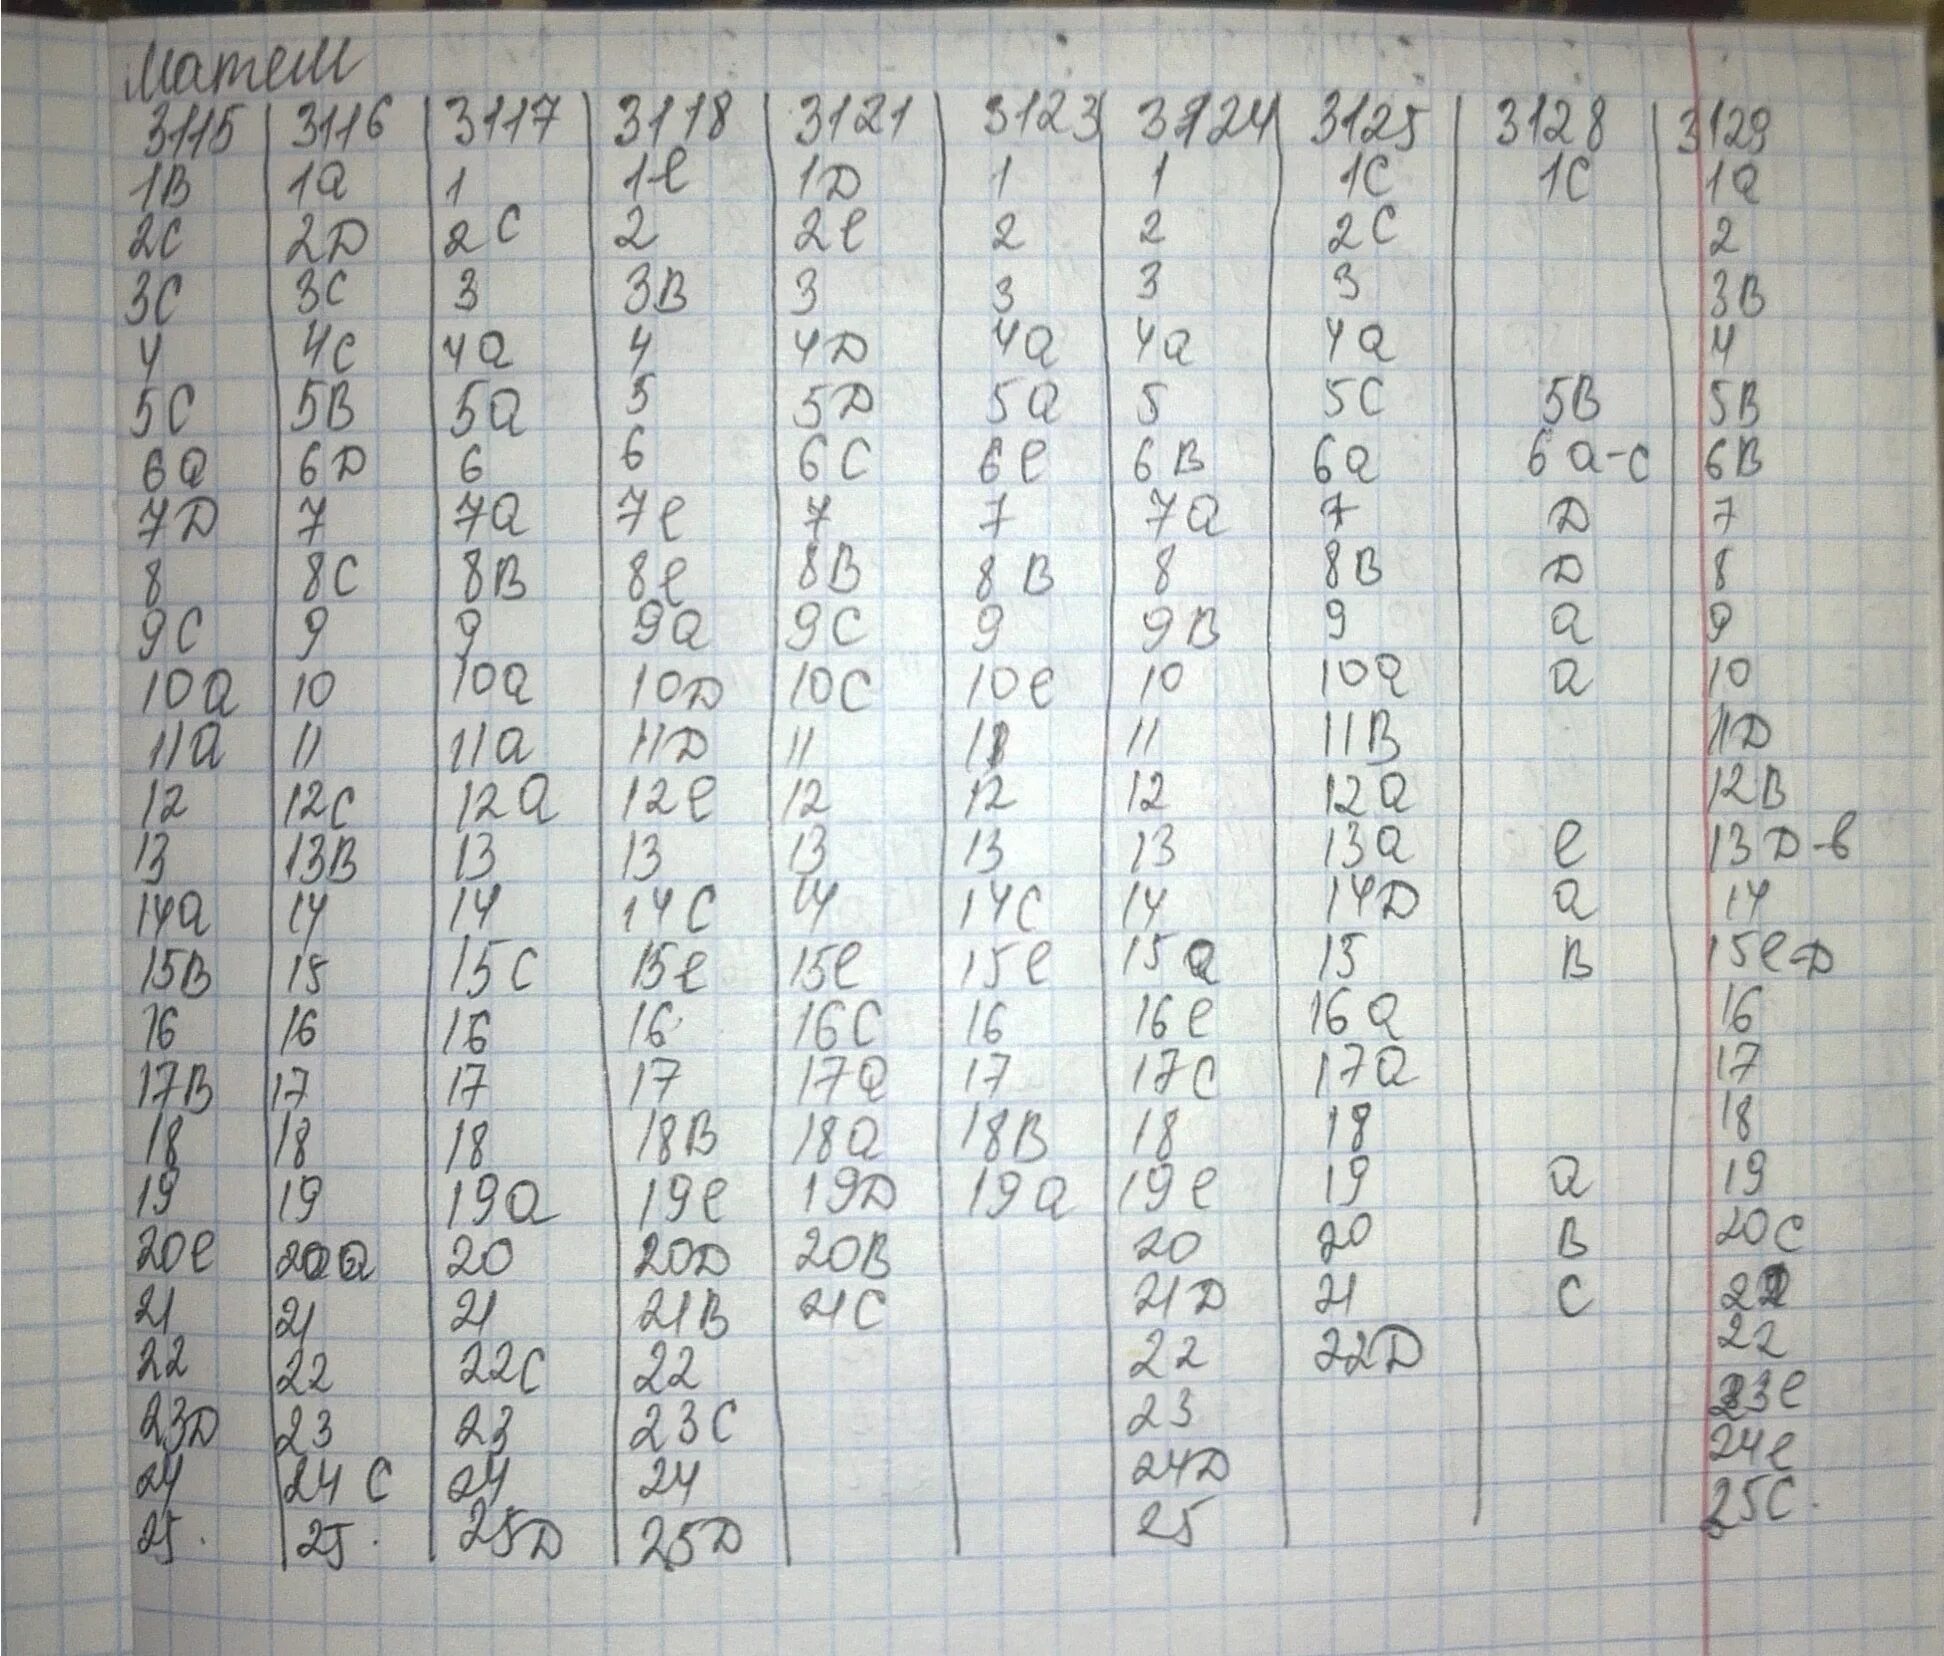 Матем
3115 3116 3117 3118 3121 3123 3124 3125 3128 3129
1B 1a 1 1e 1D 1 1 1C 1C 1a
2C 2D 2C 2 2e 2 2 2C 2
3C 3C 3 3B 3 3 3 3 3B
4 4C 4a 4 4D 4a 4a 4a 4
5C 5B 5a 5 5D 5a 5 5C 5B 5B
6a 6D 6 6 6C 6e 6B 6a 6a-c 6B
7D 7 7a 7e 7 7 7a 7 D 7
8 8C 8B 8e 8B 8B 8 8B D 8
9C 9 9 9a 9C 9 9B 9 a 9
10a 10 10a 10D 10C 10e 10 10a a 10
11a 11 11a 11D 11 11 11 11B 11D
12 12C 12a 12e 12 12 12 12a 12B
13 13B 13 13 13 13 13 13a e 13D-в
14a 14 14 14C 14 14C 14 14D a 14
15B 15 15C 15e 15e 15e 15a 15 B 15e-D
16 16 16 16 16C 16 16e 16a 16
17B 17 17 17 17a 17 17C 17a 17
18 18 18 18B 18a 18B 18 18 18
19 19 19a 19e 19D 19a 19e 19 a 19
20e 20a 20 20D 20B 20 20 B 20C
21 21 21 21B 21C 21D 21 C
22 22 22C 22 22 22D 22
23D 23 23 23C 23 23e
24 24C 24 24 24D 24e
25. 25. 25D 25D 25 25C.